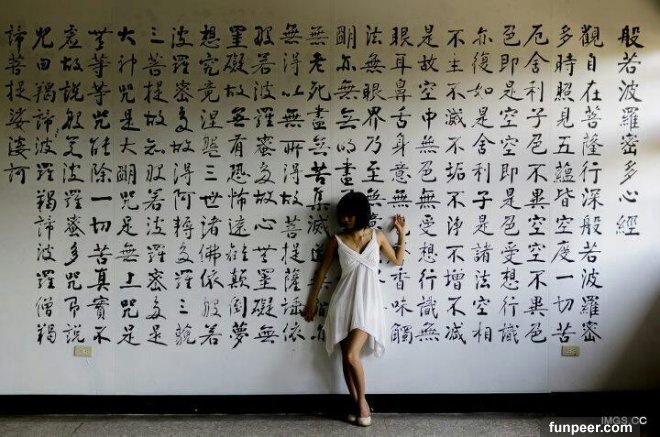 般若波羅密多心經
觀自在菩薩行深般若波羅密
多時照見五蘊皆空度一切苦
厄舍利子色不異空空不異色
色即是空空即是色受想行識
亦復如是舍利子是諸法空相
不生不滅不垢不淨不增不減
是故空中無色無受想行識無
眼耳鼻舌身意無香味觸
法無眼界乃至無意
明亦無無明盡
無老死盡無苦集滅道
無得以無所得故菩提薩埵依
般若波羅密多故心無罣礙無
罣礙故無有恐怖遠離顛倒夢
想究竟涅槃三世諸佛依般若
波羅密多故得阿耨多羅三藐
三菩提故知般若波羅密多是
大神咒是大明咒是無上咒是
無等等咒能除一切苦真實不
虛故說般若波羅密多咒即說
咒曰羯諦波羅羯諦波羅僧羯
諦菩提娑婆訶
IMGS.CC
funpeer.com